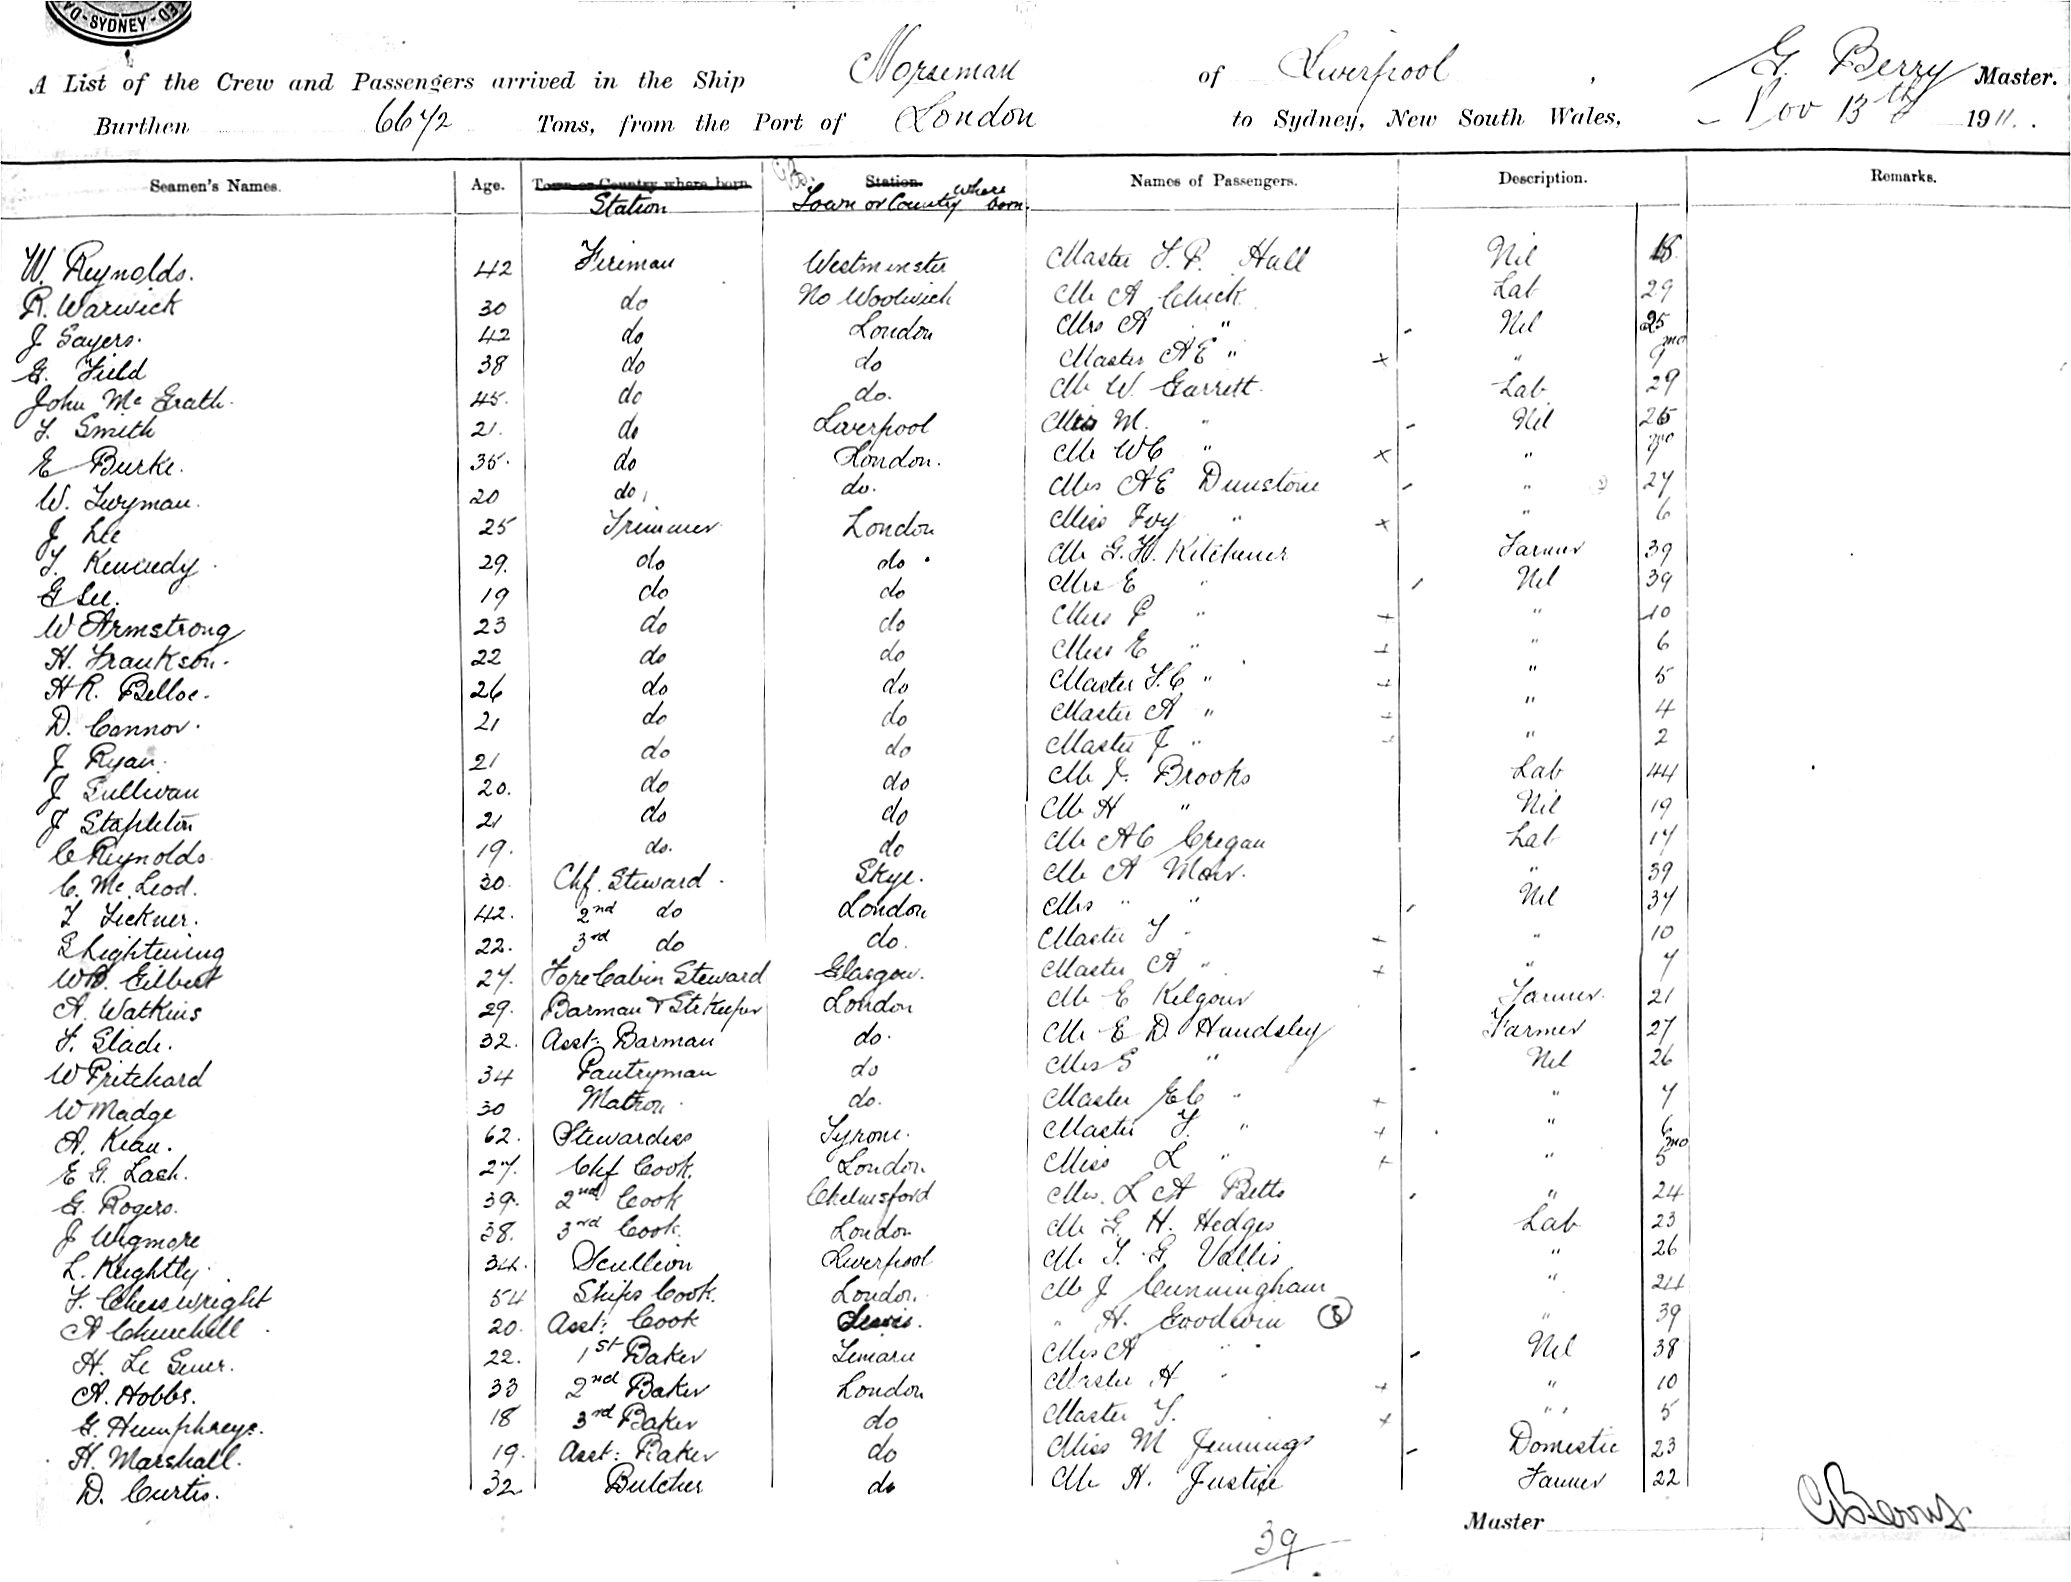 SYDNEY
A List of the Crew and Passengers arrived in the Ship Norseman of Liverpool, G. Berry Master.
Burthen 6642 Tons, from the Port of London to Sydney, New South Wales, Nov 13th 1911.
Seamen's Names. Age. Town or Country where born Station. Names of Passengers. Description. Remarks.
Station Town or Country where born.
W. Reynolds. 42 Fireman Westminster Master F. P. Hall Nil 18
R. Warwick 30 do No Woolwich Mr A Chick Lab 29
J Sayers. 42 do London Mrs A " Nil 25
G. Field 38 do do Master AE " " 9 mo
John Mc Grath. 45. do do. Mr W. Garrett. Lab 29
F. Smith 21. do Liverpool M. " Nil
E Burke. 35. do London. Mr WC " " 9 mo
W. Twyman. 20 do, do. Mrs AE Dunstone " 27
J Lee 25 Trimmer London Miss Ivy " " 6
T. Kennedy. 29. do do. Mr G. H. Kitchener Farmer 39
G Lee. 19 do do Mrs E " Nil 39
W Armstrong 23 do do Miss P " " 10
H. Frankson. 22 do do Miss E " " 6
H R. Belloe. 26 do do Master F. C " " 5
D. Connor. 21 do do Master A " " 4
J Ryan. 21 do do Master J " " 2
J Sullivan 20. do do Mr J. Brooks Lab 44
J Stapleton 21 do do Mr H " Nil 19
C Reynolds 19. do. do Mr AC Cregan Lab 17
C. Mc Leod. 30. Chf. Steward. Skye. Mr A Moir. " 39
T Tickner. 42. 2nd do London Mrs " " Nil 37
E Lightening 22. 3rd do do. Master F " " 10
Gilbert 27. Fore Cabin Steward Glasgow. Master A " " 7
A. Watkins 29. Barman & SteKeeper London Mr E Kilgour Farmer. 21
F. Slade. 32. Asst: Barman do. Mr E D. Handsley Farmer 27
W Pritchard 34 Pantryman do Mrs E " Nil 26
W Madge 30 Matron do. Master EC " " 7
A. Kean. 62. Stewardess Tyrone. Master F. " " 6
E G. Lash. 27. Chf Cook. London Miss L " " 5 mo
G. Rogers. 39. 2nd Cook Chelmsford Mrs. L A Betts " 24
J Wigmore 38. 3rd Cook. London Mr G. H. Hedges Lab 23
L. Knightly. 34. Scullion Liverpool Mr F. G. Vallis " 26
F. Chesswright 54 Ships Cook. London. Mr J Cunningham " 24
A Churchill 20. Asst: Cook " H. Goodwin " 39
H. Le Sueur. 22. 1st Baker Timaru Mrs A " Nil 38
A. Hobbs. 33 2nd Baker London Master H " " 10
G. Humphreys. 18 3rd Baker do Master F. " 5
H. Marshall. 19. Asst: Baker do Miss M Jennings Domestic 23
D. Curtis. 32 Butcher do Mr H. Justice Farmer 22
Master G Berry.
39